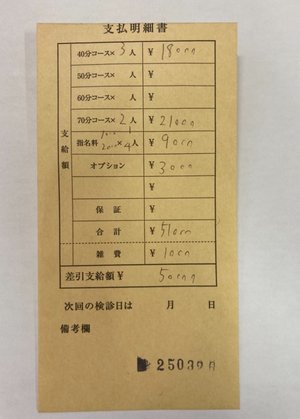 支払明細書
40分コース× 3 人 ¥ 18000
50分コース× 人 ¥
60分コース× 人 ¥
70分コース× 2 人 ¥ 21000
支給額
指名料 2000 × 4 人 ¥ 9000
オプション ¥ 3000
¥
保証 ¥
合計 ¥ 51000
雑費 ¥ 1000
差引支給額 ¥ 50000
次回の検診日は 月 日
備考欄